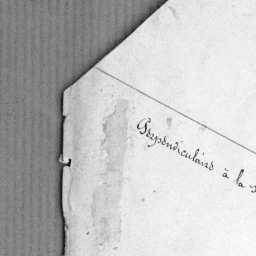 Perpendiculaire à la